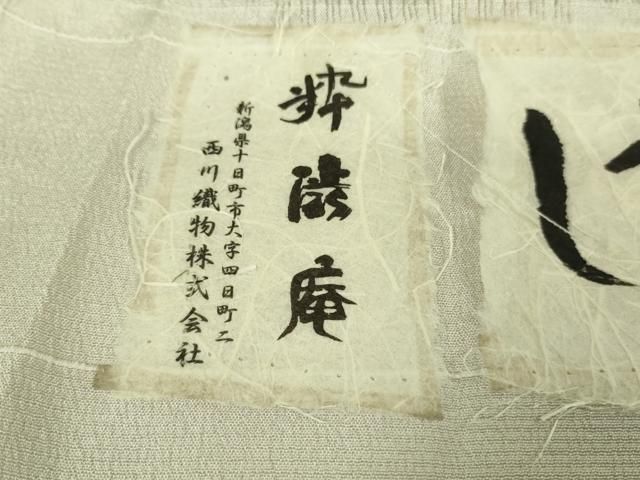 し
粋渋庵
新潟県十日町市大字四日町二
西川織物株式会社